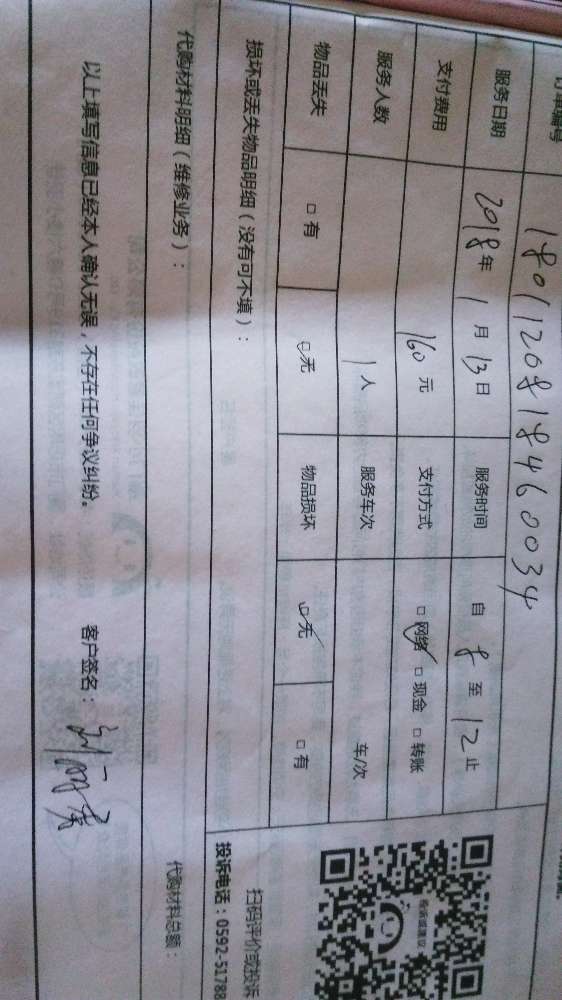 订单编号 180112081846 0034
服务日期 2018年 1月 13日 服务时间 自 8 至 12 止
支付费用 160 元 支付方式 □ 网络 □ 现金 □ 转账
服务人数 1 人 服务车次 车/次
物品丢失 □ 有 □ 无 物品损坏 □ 无 □ 有
扫码评价或投诉
损坏或丢失物品明细（没有可不填）： 投诉电话：0592-51788
代购材料明细（维修业务）： 代购材料总额：
以上填写信息已经本人确认无误，不存在任何争议纠纷。 客户签名：